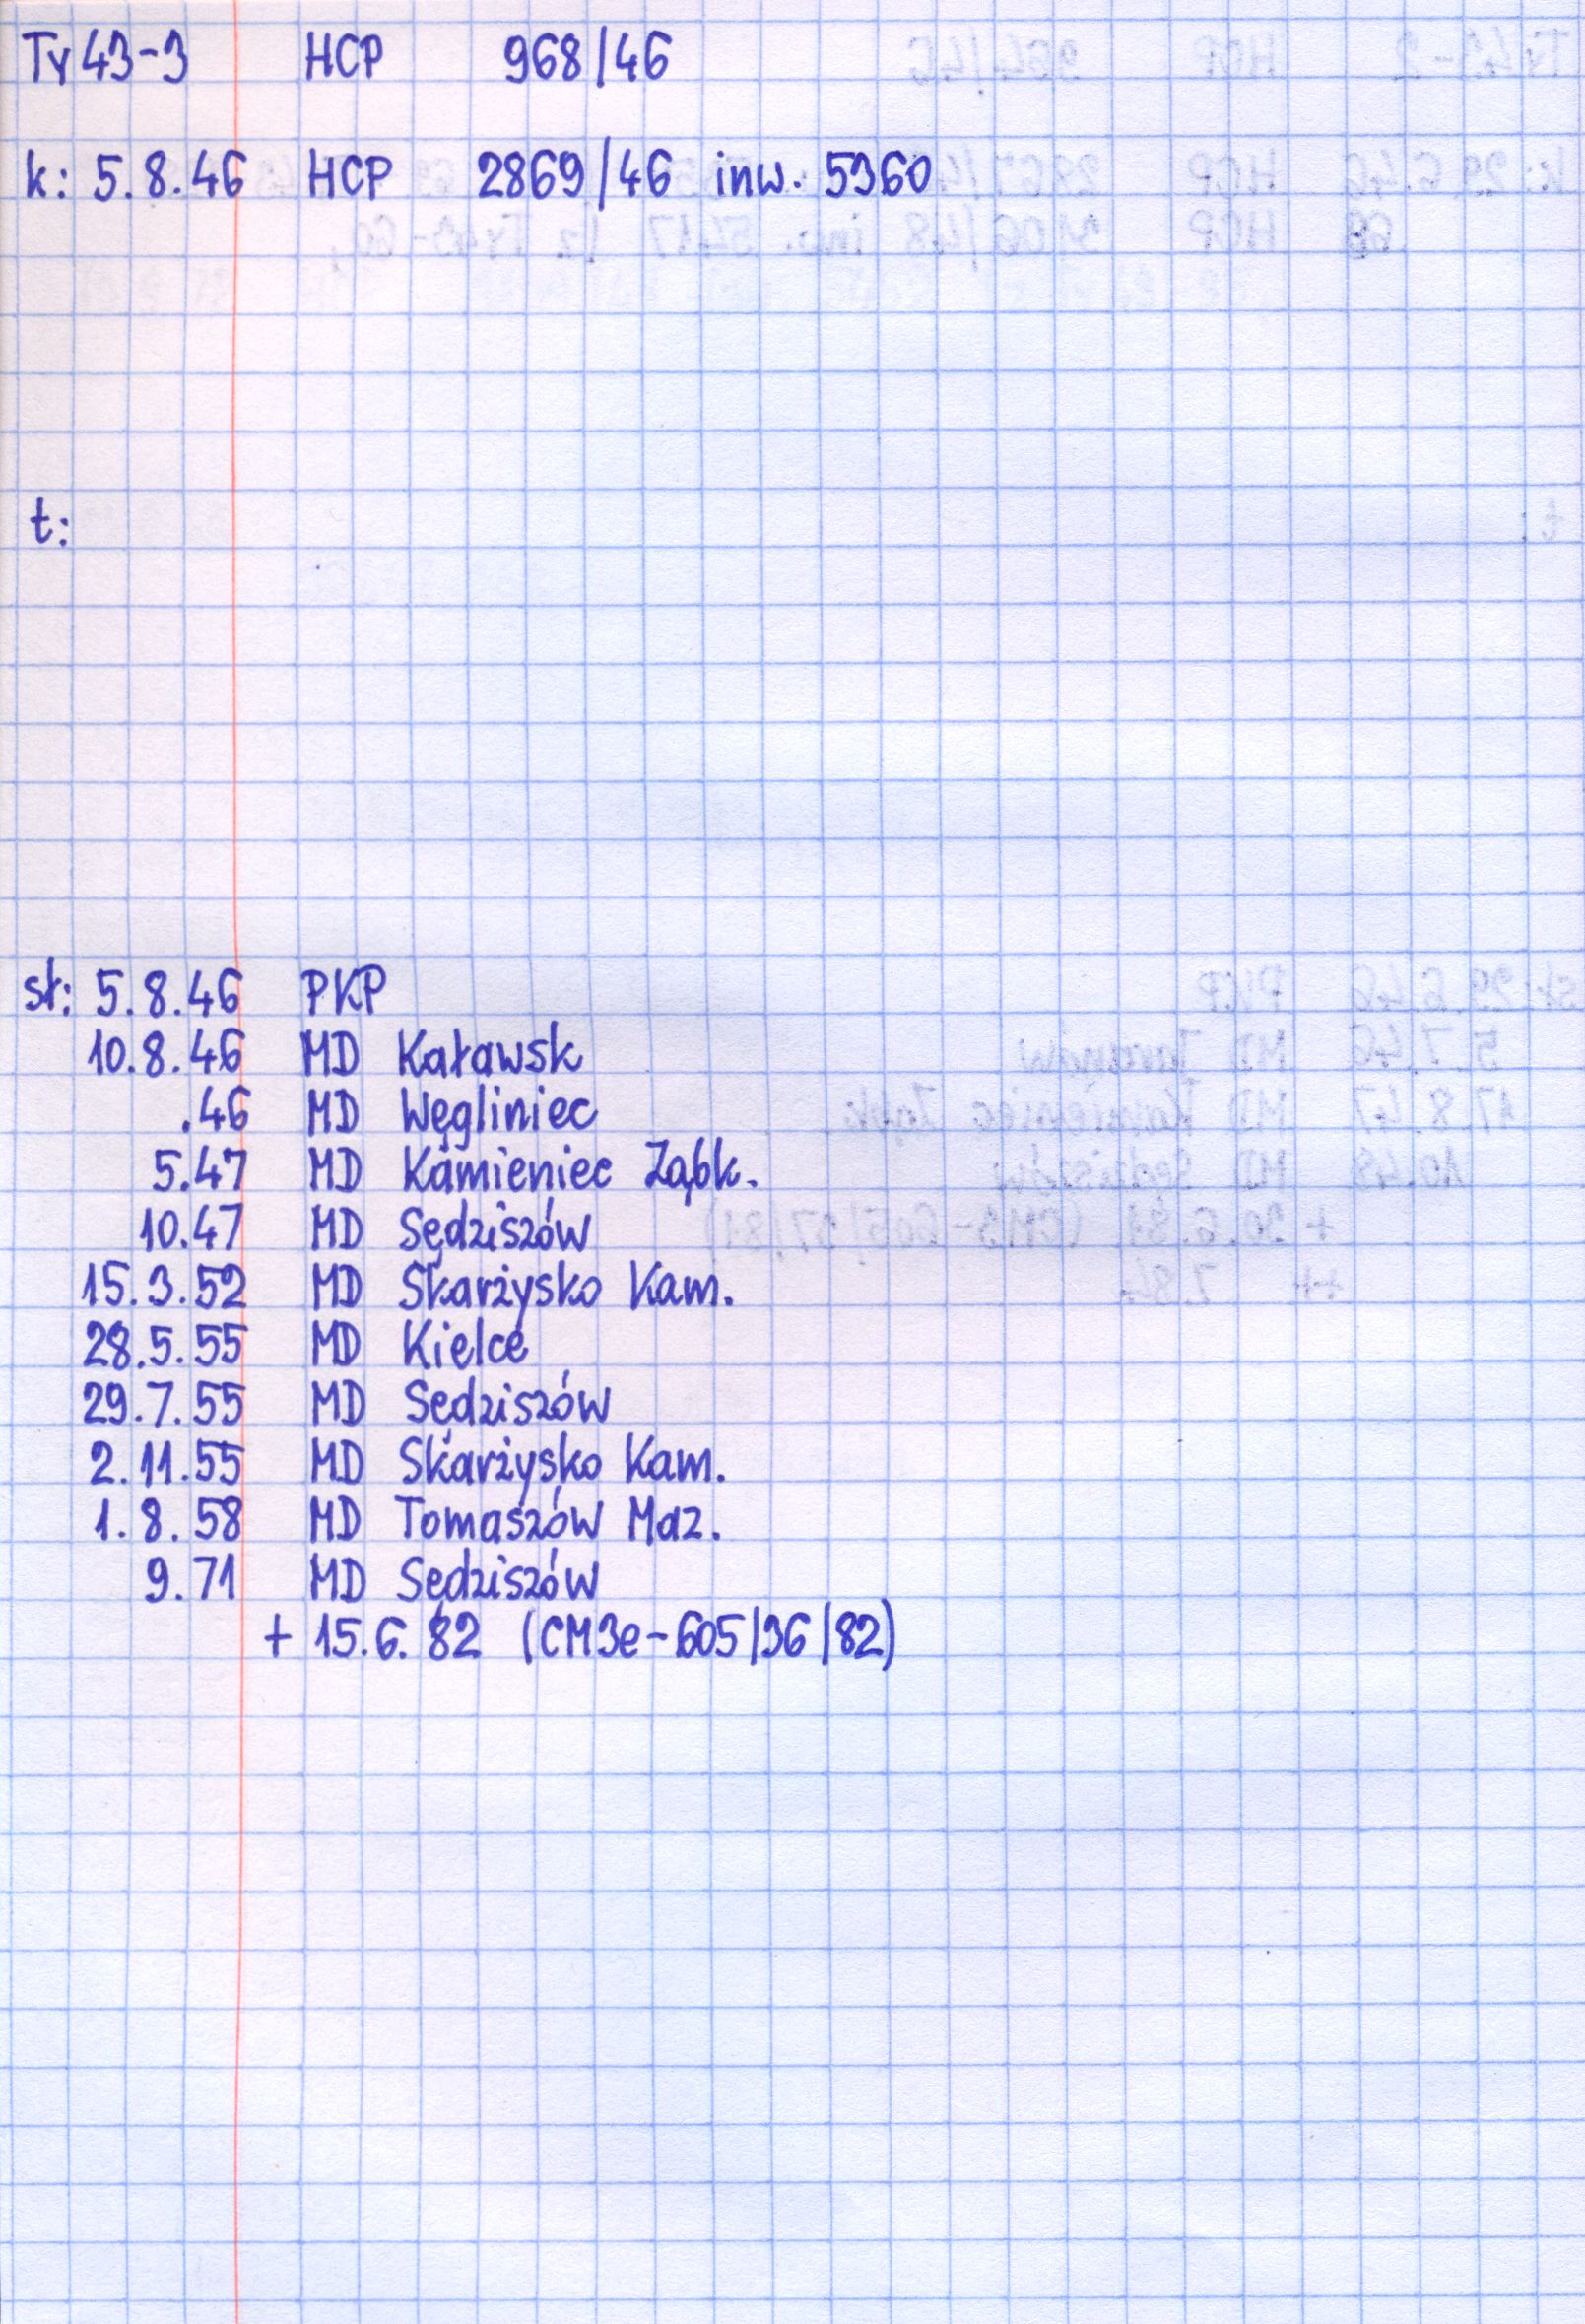 Ty43-3 HCP 968/46
k: 5.8.46 HCP 2869/46 inw. 5360
t:
st: 5.8.46 PKP
10.8.46 MD Kaławsk
.46 MD Węgliniec
5.47 MD Kamieniec Ząbk.
10.47 MD Sędziszów
15.3.52 MD Skarżysko Kam.
28.5.55 MD Kielce
29.7.55 MD Sędziszów
2.11.55 MD Skarżysko Kam.
1.8.58 MD Tomaszów Maz.
9.71 MD Sędziszów
+ 15.6.82 (CM3e-605/36/82)